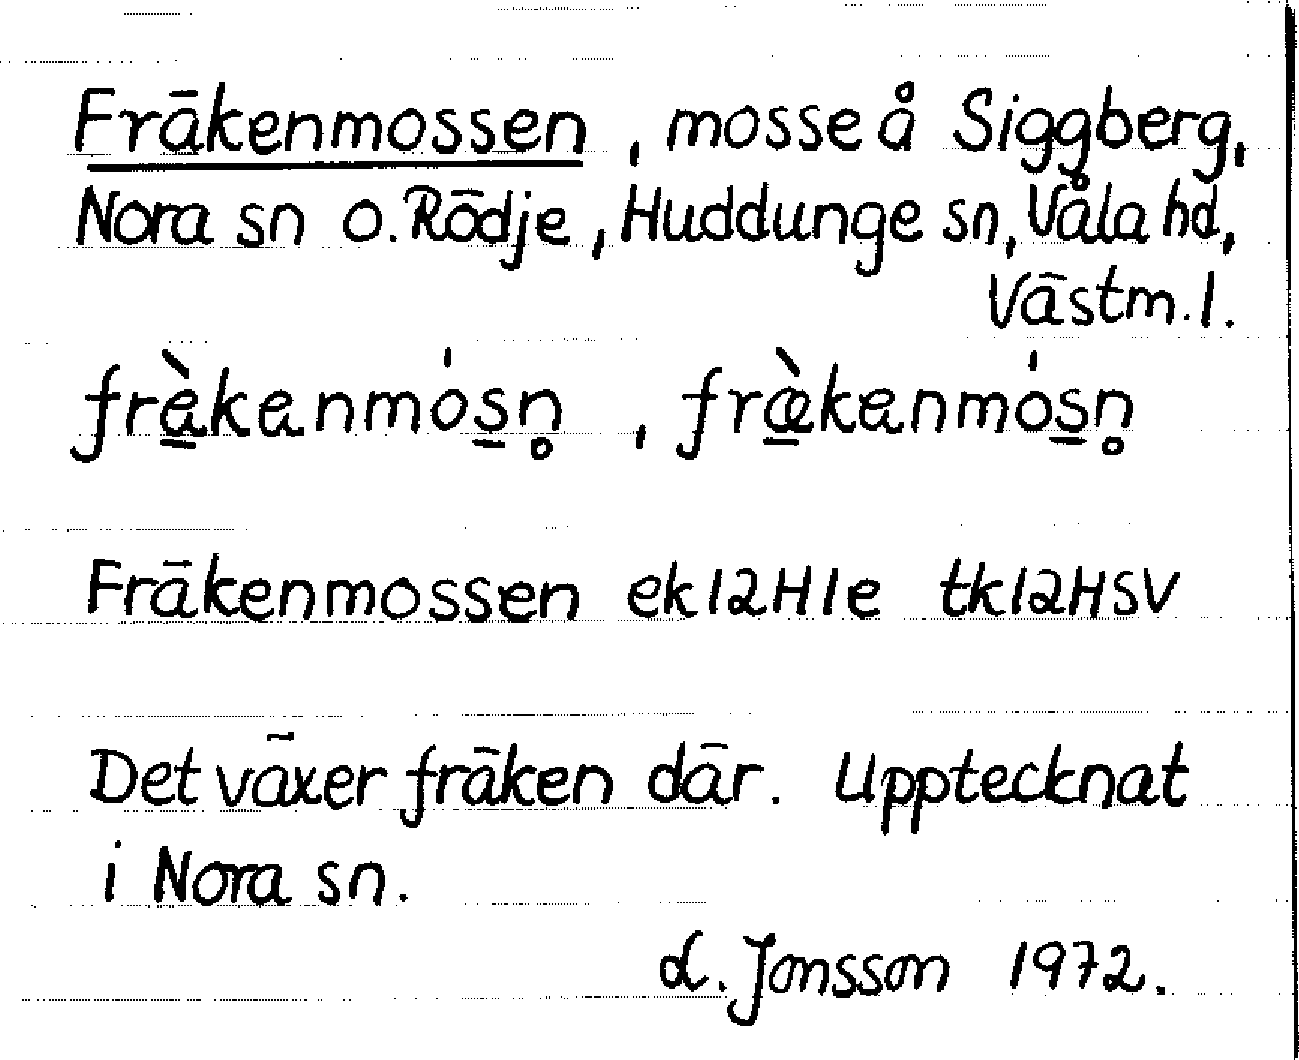 Fräkenmossen, mosse å Siggberg,
Nora sn o. Rödje, Huddunge sn, Våla hd,
Västm. l.
fräkenmossen ek12H1e tk12HSV
Det växer fräken där. Upptecknat
i Nora sn.
L. Jonsson 1972.